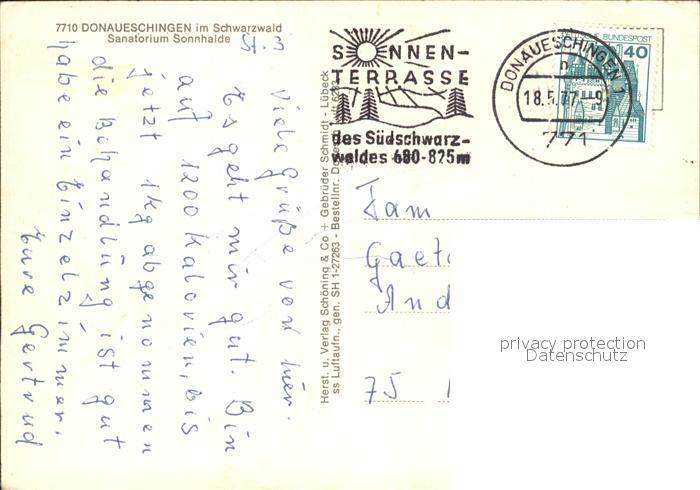 7710 DONAUESCHINGEN im Schwarzwald
Sanatorium Sonnhalde
Viele Grüße von hier.
Es geht mir gut. Bin
auf 1200 Kalorien, bis
jetzt 1kg abgenommen
die Behandlung ist gut
habe ein Einzelzimmer.
Eure Gertrud
Herst. u. Verlag Schöning & Co + Gebrüder Schmidt - Lübeck
ss Luftaufn., gen. SH 1-27263 - Bestellnr:
SONNEN-
TERRASSE
des Südschwarz-
waldes 680-825m
DONAUESCHINGEN 1
18.5.77-9
771
DEUTSCHE BUNDESPOST
40
Fam
Gaet
And
75
privacy protection
Datenschutz